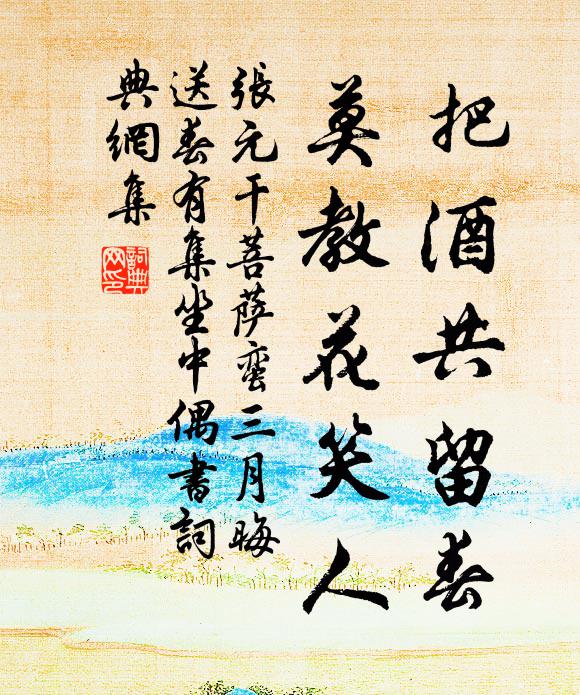 把酒共留春
莫教花笑人
張元干菩萨蛮三月晦
送春有集坐中偶書詞
典網集
詞典网印